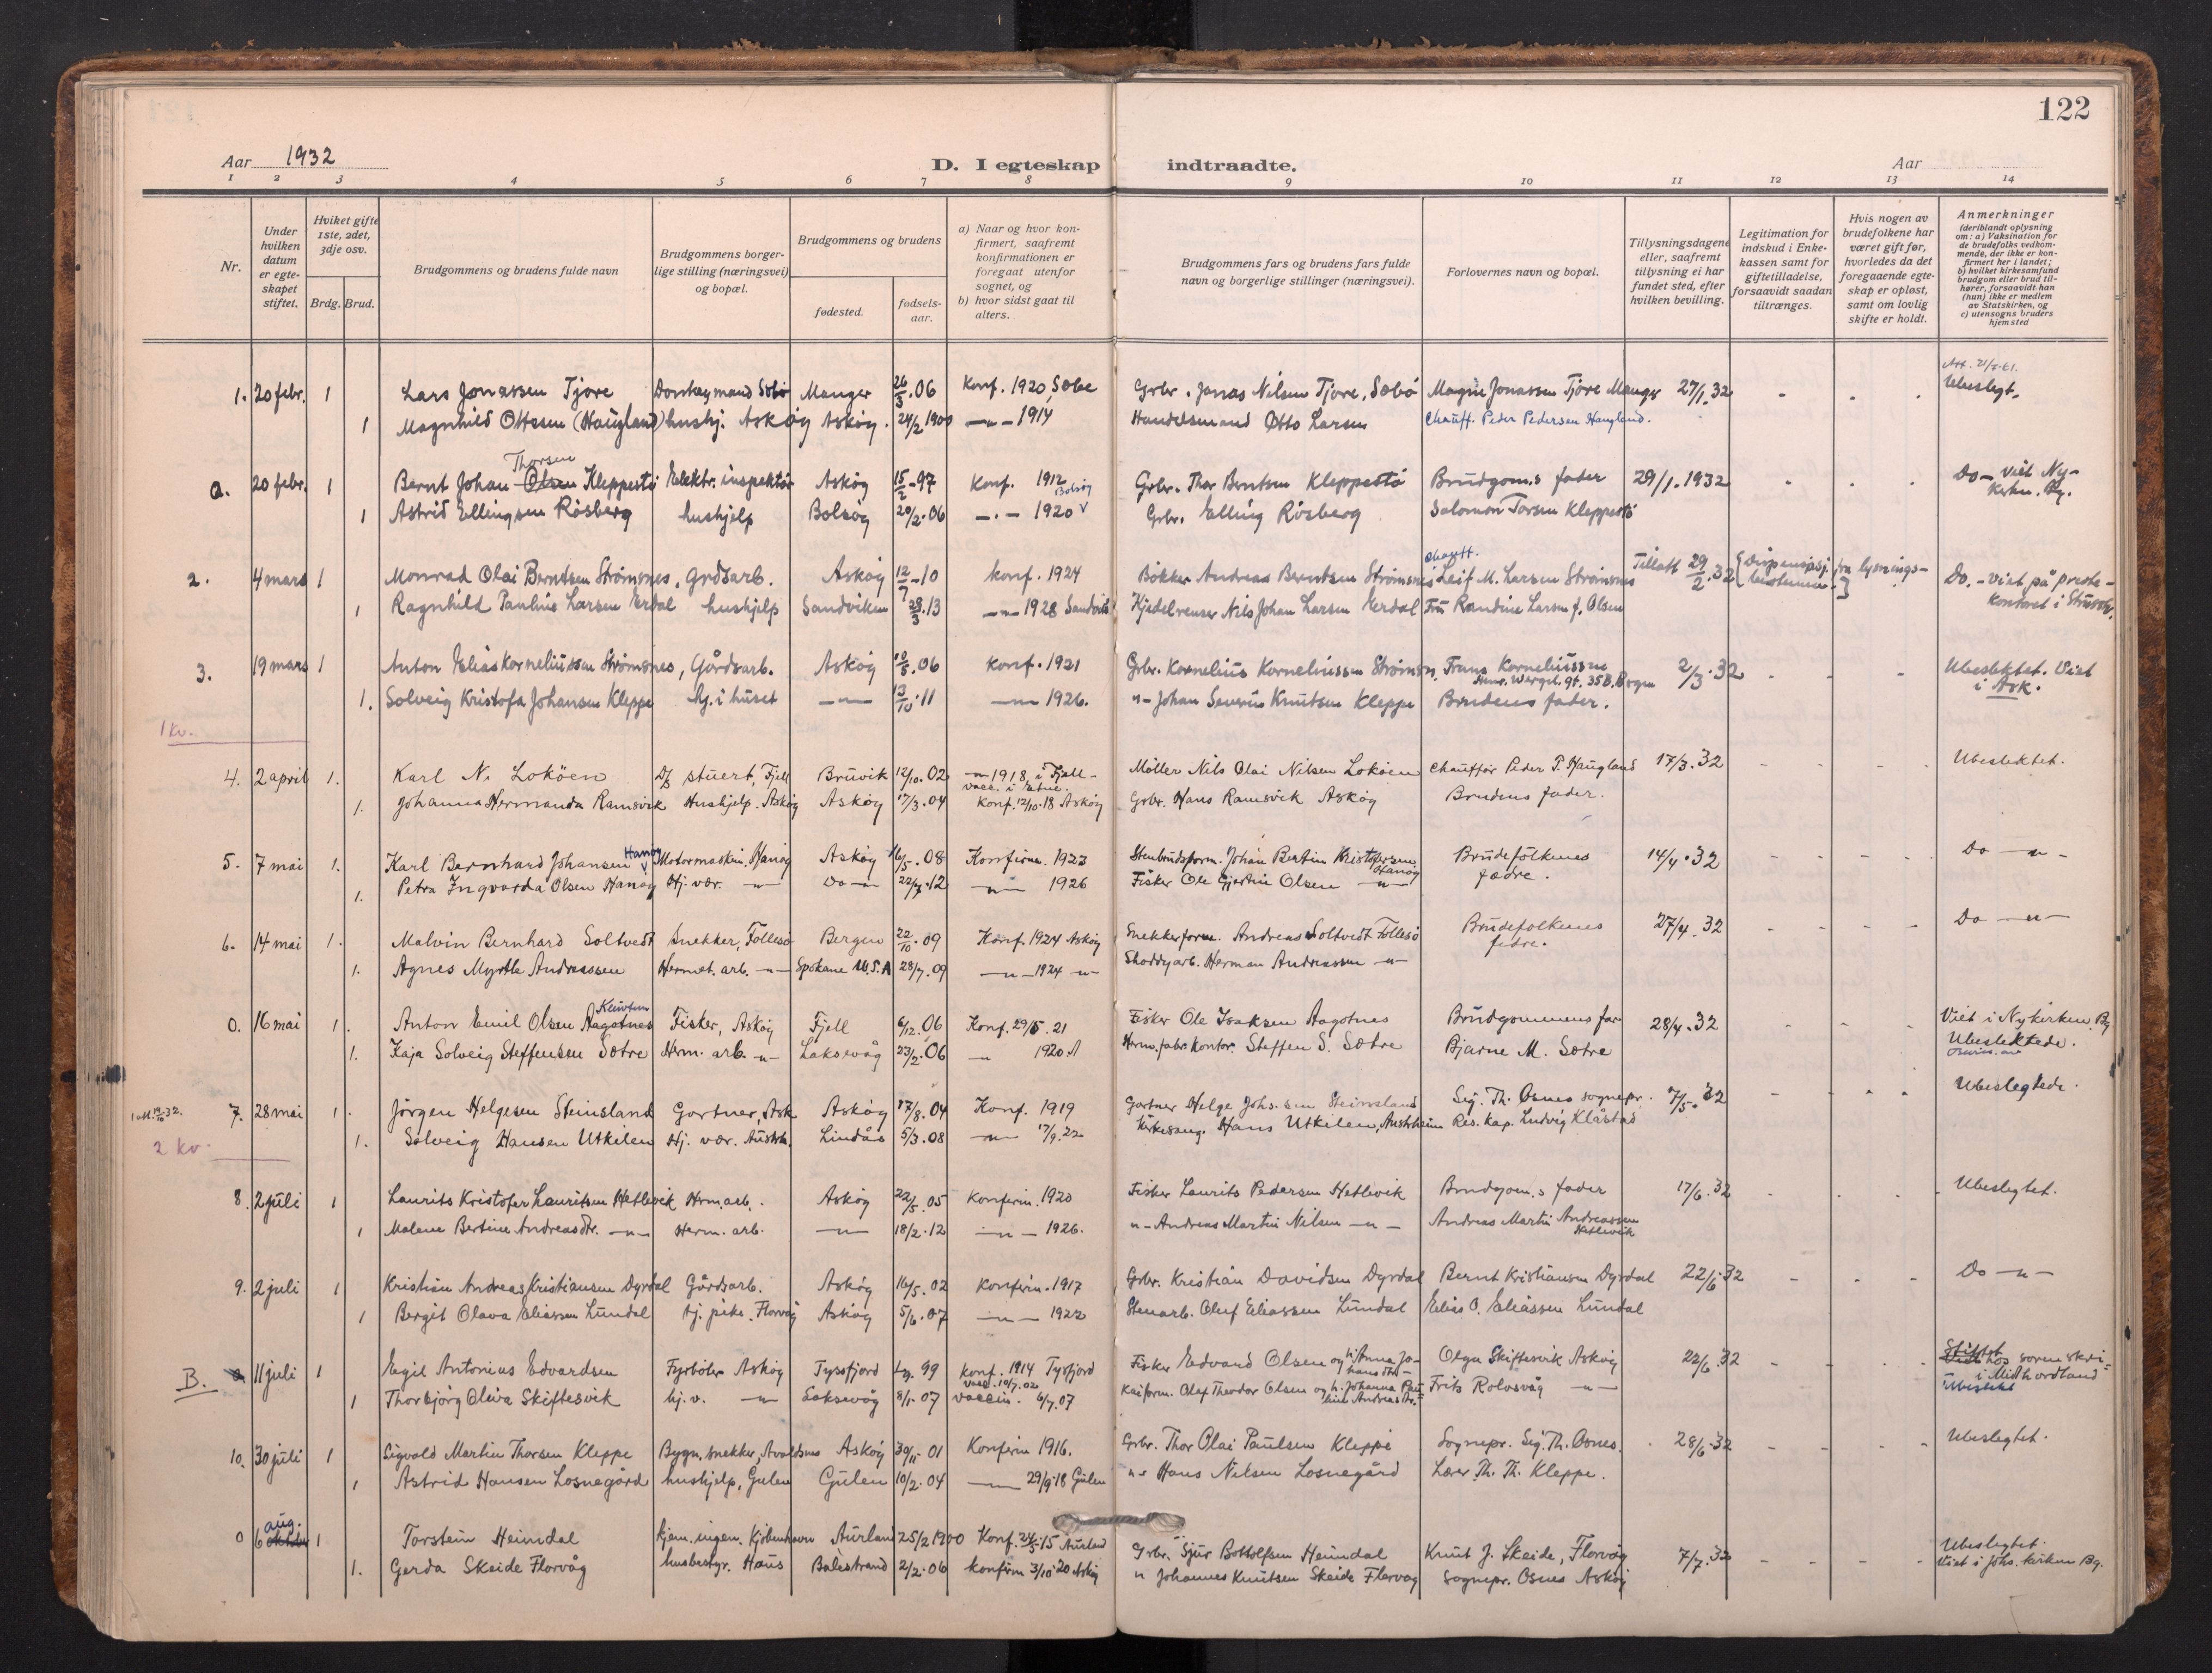 122
Aar 1932
D. I egteskap indtraadte.
Aar
1 2 3 4 5 6 7 8 9 10 11 12 13 14
Nr.
Under hvilken datum er egteskapet stiftet.
Hviket gifte 1ste, 2det, 3dje osv.
Brdg. Brud.
Brudgommens og brudens fulde navn
Brudgommens borgerlige stilling (næringsvei) og bopæl.
Brudgommens og brudens
fødested.
fødselsaar.
a) Naar og hvor konfirmert, saafremt konfirmationen er foregaat utenfor sognet, og
b) hvor sidst gaat til alters.
Brudgommens fars og brudens fars fulde navn og borgerlige stillinger (næringsvei).
Forlovernes navn og bopæl.
Tillysningsdagene eller, saafremt tillysning ei har fundet sted, efter hvilken bevilling.
Legitimation for indskud i Enkekassen samt for giftetilladelse, forsaavidt saadan tiltrænges.
Hvis nogen av brudefolkene har været gift før, hvorledes da det foregaaende egteskap er opløst, samt om lovlig skifte er holdt.
Anmerkninger (deriblandt oplysning om: a) Vaksination for de brudefolks vedkommende, der ikke er konfirmert her i landet; b) hvilket kirkesamfund brudgom eller brud tilhører, forsaavidt han (hun) ikke er medlem av Statskirken, og c) utensogns bruders hjemsted
1. 20 febr. 1 Lars Jonassen Tjore Donkeymand Sæbø Manger 26/3.06 Konf. 1920 Sæbø Grbr. Jonas Nilsen Tjore, Sæbö Magne Jonassen Tjöre Manger 27/1.32 Ubeslegt.
1 Magnhild Ottesen (Haugland) hushj. Askøy Askøy. 24/2 1900 -"- 1914 Handelsmand Otto Larsen Chauff. Peder Pedersen Haugland.
a. 20 febr. 1 Bernt Johan Olsen Thorsen Kleppestø Elektr. inspektør Askøy 15/2-97 Konf. 1912 Grbr. Thor Berntsen Kleppestö Brudgom.s fader 29/1.1932 Do - viet Nykirken. Bg.
1 Astrid Ellingsen Rösberg hushjelp Bolsøy 20/2.06 -"- 1920 Bolsøy Grbr. Elling Rösberg Salomon Torsen Kleppestö
2. 4 mars 1 Monrad Olai Berntsen Strömsnes, Grdsarb. Askøy 12/7-10 konf. 1924 Bökker Andreas Berntsen Strömsnes Chauff. Leif M. Larsen Strömsnes Tillatt 29/2.32 Do. - viet på prestekontoret i Strusshv.
1 Ragnhild Pauline Larsen Erdal hushjelp Sandviken 28/3.13 -"- 1928 Sandvik Kjedelrenser Nils Johan Larsen Erdal Fru Randine Larsen f. Olsen
3. 19 mars 1 Anton Elias Korneliussen Strömsnes, Gårdsarb. Askøy 10/5.06 konf. 1921 Grbr. Kornelius Korneliussen Strömsn. Frans Korneliussen Henr. Wergel. gt. 35 B. Bergen 2/3.32 Ubeslektet. Viet i Ask.
1. Solveig Kristofa Johansen Kleppe hj. i huset -"- 13/10.11 -"- 1926. "- Johan Severus Knutsen Kleppe Brudens fader.
1 kv.
4. 2 april 1. Karl N. Loköen D/S stuert, Fjell Bruvik 12/10.02 -"- 1918 i Fjell - vacc. i Möller Nils Olai Nilsen Loköen Chauffør Peder P. Haugland 17/3.32 Ubeslektet.
1. Johanna Hermanda Ramsvik Hushjelp. Askøy Askøy 17/3.04 Konf. 12/10.18 Askøy Grbr. Hans Ramsvik Askøy Brudens fader.
5. 7 mai 1. Karl Bernhard Johansen Hanøy Motormaskin. Hanøy Askøy 16/5.08 Konfirm. 1923 Stenbrudsform. Johan Bertin Kristofersen Hanøy Brudefolkenes fædre. 14/4.32 Do -"-
1. Petra Ingvarda Olsen Hanøy Hj. vær. -"- Do -"- 22/7.12 -"- 1926 Fisker Ole Gjertin Olsen -"-
6. 14 mai 1. Malvin Bernhard Soltvedt Snekker, Follesø Bergen 22/10.09 Konf. 1924 Askøy Snekkerform. Andreas Soltvedt Follesö Brudefolkenes fedre. 27/4.32 Do -"-
1. Agnes Myrtle Andreassen Hermet. arb. -"- Spokane U.S.A 28/7.09 -"- 1924 -"- Shoddyarb. Herman Andreassen -"-
0. 16 mai 1. Anton Emil Olsen Aagotnes Fisker, Askøy Fjell 6/12.06 Konf. 29/5.21 Fisker Ole Isaksen Aagotnes Brudgommens far 28/4.32 Viet i Nykirken Bg. Ubeslektede.
1. Kaja Solveig Steffensen Sætre Herm. arb. -"- Laksevåg 23/2.06 " 1920 Herm. fabr. kontor. Steffen S. Sætre Bjarne M. Sætre
7. 28 mai 1. Jörgen Helgesen Steinsland Gartner, Ask Askøy 17/8.04 Konf. 1919 Gartner Helge Johs.sen Steinsland Sig. Th. Osnes sognepr. 7/5.32 Ubeslegtede.
1. Solveig Hansen Utkilen Hj. vær. Austrh. Lindås 5/3.08 -"- 17/9.22 Kirkesang. Hans Utkilen, Austrheim Res. kap. Ludvig Klåstad
2 kv.
8. 2 juli 1 Laurits Kristofer Lauritsen Hetlevik Hrm.arb. Askøy 22/5.05 Konfirm. 1920 Fisker Laurits Pedersen Hetlevik Brudgom.s fader 17/6.32 Ubeslegtet.
1 Malene Bertine Andreasdtr. -"- Herm. arb. -"- 18/2.12 -"- 1926. "- Andreas Martin Nilsen -"- Andreas Martin Andreassen Hetlevik
9. 2 juli 1 Kristian Andreas Kristiansen Dyrdal Gårdsarb. Askøy 16/5.02 Konfirm. 1917 Grbr. Kristian Davidsen Dyrdal Bernt Kristiansen Dyrdal 22/6.32 Do -"-
1 Bergit Olava Eliassen Lundal tj. pike. Florvåg Askøy 5/6.07 -"- 1922 Stenarb. Oluf Eliassen Lundal Elias O. Eliassen Lundal
B. 11 juli 1 Egil Antonius Edvardsen Fyrböter Askøy Tyssfjord 99 konf. 1914 Tysfjord Fisker Edvard Olsen og h. Anna Johansdtr. Olga Skiftesvik Askøy 22/6.32 Stiftet hos sorenskri- i Midthordland Ubeslekt
1 Thorbjörg Oliva Skiftesvik hj. v. -"- Laksevåg 8/1.07 vaccin. 6/7.07 Kaiform. Olaf Theodor Olsen og h. Johanna Pauline Andreasdtr. Frits Rolvsvåg -"-
10. 30 juli 1 Sigvald Martin Thorsen Kleppe Bygn. snekker, Avaldsnes Askøy 30/11.01 Konfirm 1916. Grbr. Thor Olai Paulsen Kleppe Sognepr. Sig. Th. Osnes. 28/6.32 Ubeslegtet.
1 Astrid Hansen Losnegård hushjelp, Gulen Gulen 10/2.04 -"- 29/9.18 Gulen "- Hans Nilsen Losnegård Lærer Th. Th. Kleppe.
0 6 aug. 1 Torstein Heimdal kjem. ingen. Kjöbenhavn Aurland 25/2 1900 Konf. 24/5.15 Aurland Grbr. Sjur Bottolfsen Heimdal Knut J. Skeide, Florvåg 7/7.32 Ubeslegtet. Viet i Johs. kirken Bg.
1. Gerda Skeide Florvåg husbestyr. Haus Balestrand 2/2.06 konfirm 3/10.20 Askøy " Johannes Knutsen Skeide Florvåg Sognepr. Osnes Askøy